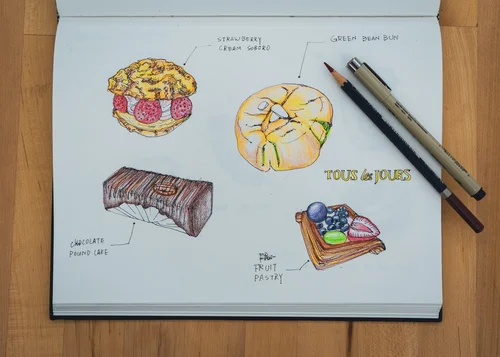 STRAWBERRY
CREAM SOBORO
GREEN BEAN BUN
TOUS les JOURS
CHOCOLATE
POUND CAKE
FRUIT
PASTRY